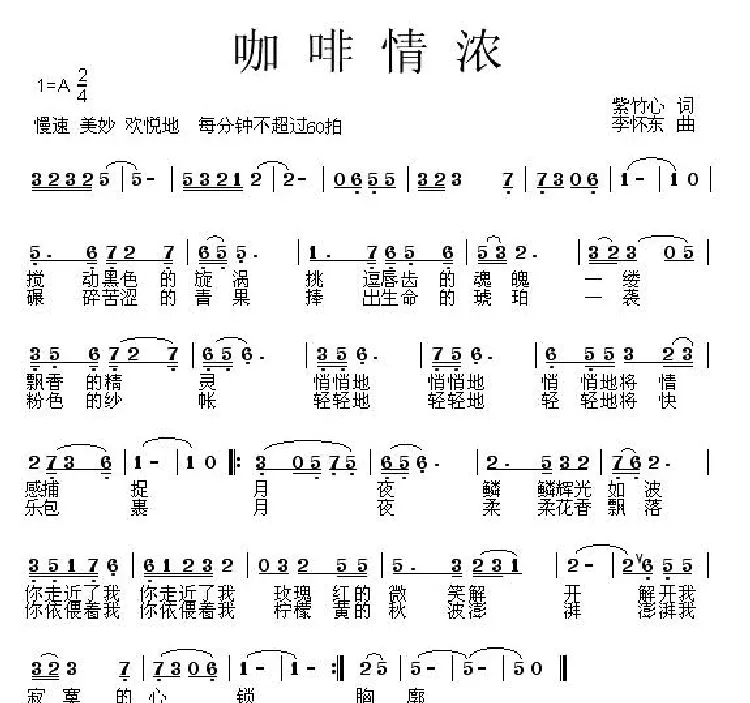 咖啡情浓
1=A 2/4
紫竹心 词
慢速 美妙 欢悦地 每分钟不超过60拍
李怀东 曲
3 2 3 2 5 | 5 - | 5 3 2 1 2 | 2 - | 0 6 5 5 | 3 2 3 7 | 7 3 0 6 | 1 - | 1 0 |
5 . 6 7 2 7 | 6 5 5 . | 1 . 7 6 5 6 | 5 3 2 . | 3 2 3 0 5 |
搅 动黑色 的 旋 涡 挑 逗唇齿 的 魂 魄 一 缕
碾 碎苦涩 的 青 果 捧 出生命 的 琥 珀 一 袭
3 5 6 7 2 7 | 6 5 6 . | 3 5 5 . | 7 5 6 . | 6 5 5 3 2 3 |
飘香 的精 灵 悄悄地 悄悄地 悄 悄地将 情
粉色 的纱 帐 轻轻地 轻轻地 轻 轻地将 快
2 7 3 6 | 1 - | 1 0 |: 3 0 5 7 5 | 6 5 6 . | 2 . 5 3 2 | 7 6 2 . |
感捕 捉 月 夜 鳞 鳞辉光 如 波
乐包 裹 月 夜 柔 柔花香 飘 落
3 5 1 7 6 | 6 1 2 3 2 | 0 3 2 5 5 | 5 . 3 2 3 1 | 2 - | 2 6 5 5 |
你走近了我 你走近了我 玫瑰 红的 微 笑解 开 解开我
你依偎着我 你依偎着我 柠檬 黄的 秋 波澎 湃 澎湃我
3 2 3 7 | 7 3 0 6 | 1 - | 1 - :| 2 5 | 5 - | 5 0 ‖
寂 寞 的 心 锁 胸 廓